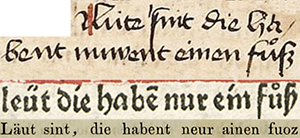 Lüte sint die ha-
bent nuwent einen fuͦß
leüt die habẽ nur ein fuͦß
Läut sint, die habent neur ainen fuoz